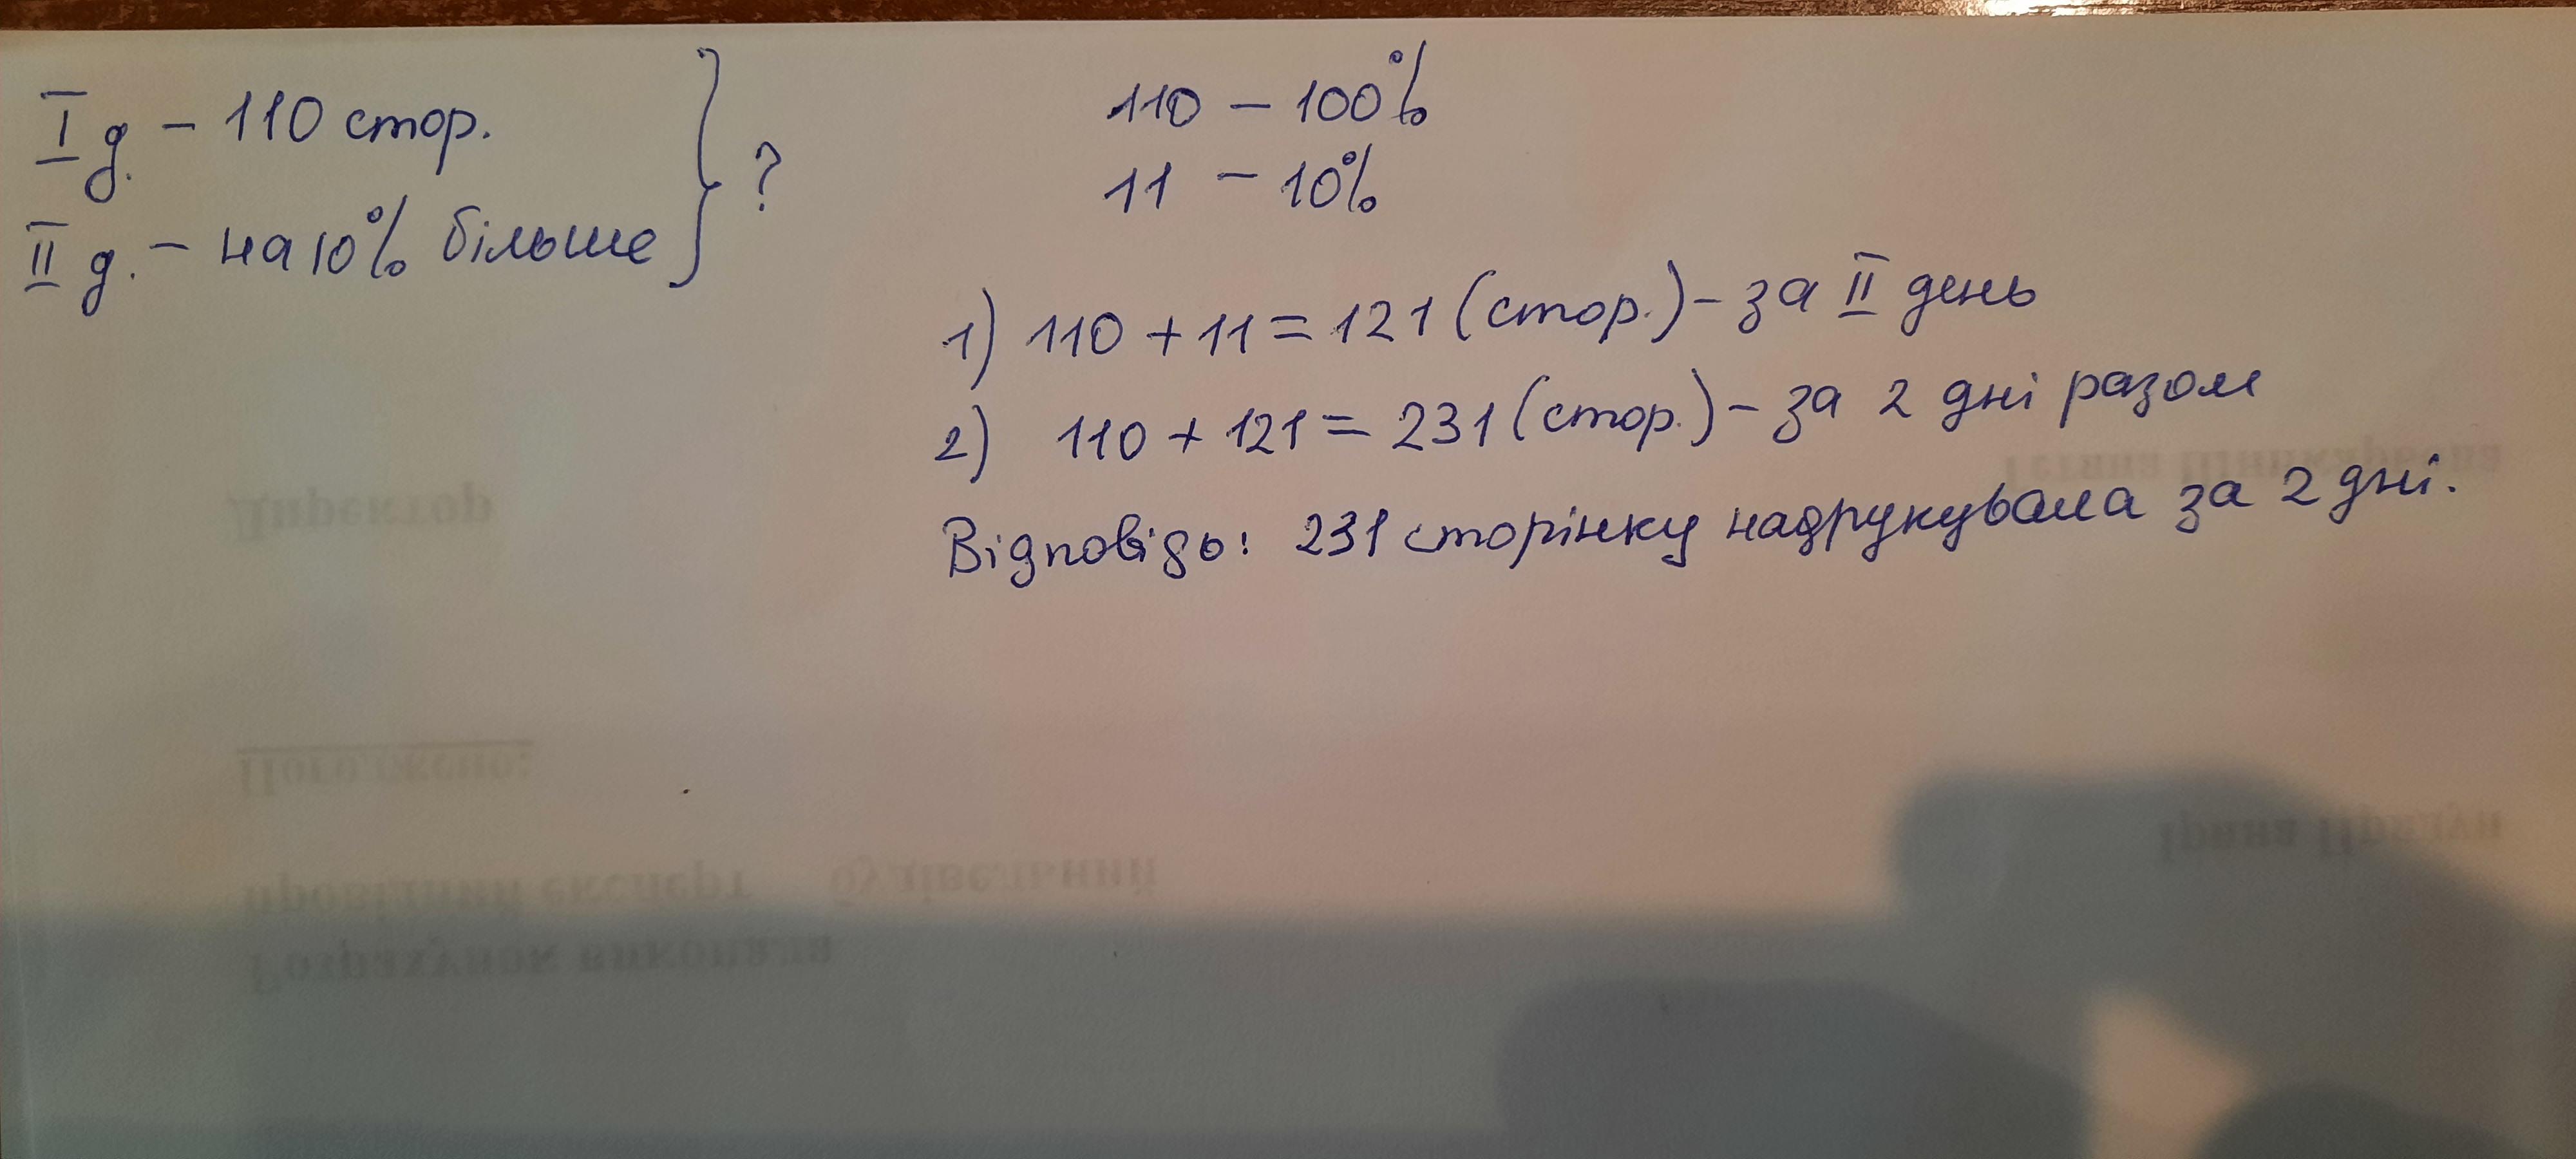 I д. – 110 стор.
II д. – на 10% більше
} ?
110 – 100%
11 – 10%
1) 110 + 11 = 121 (стор.) – за II день
2) 110 + 121 = 231 (стор.) – за 2 дні разом
Відповідь: 231 сторінку надрукувала за 2 дні.
Директор
Погоджено:
Ірина
провідний експерт будівельний
Розрахунок виконала